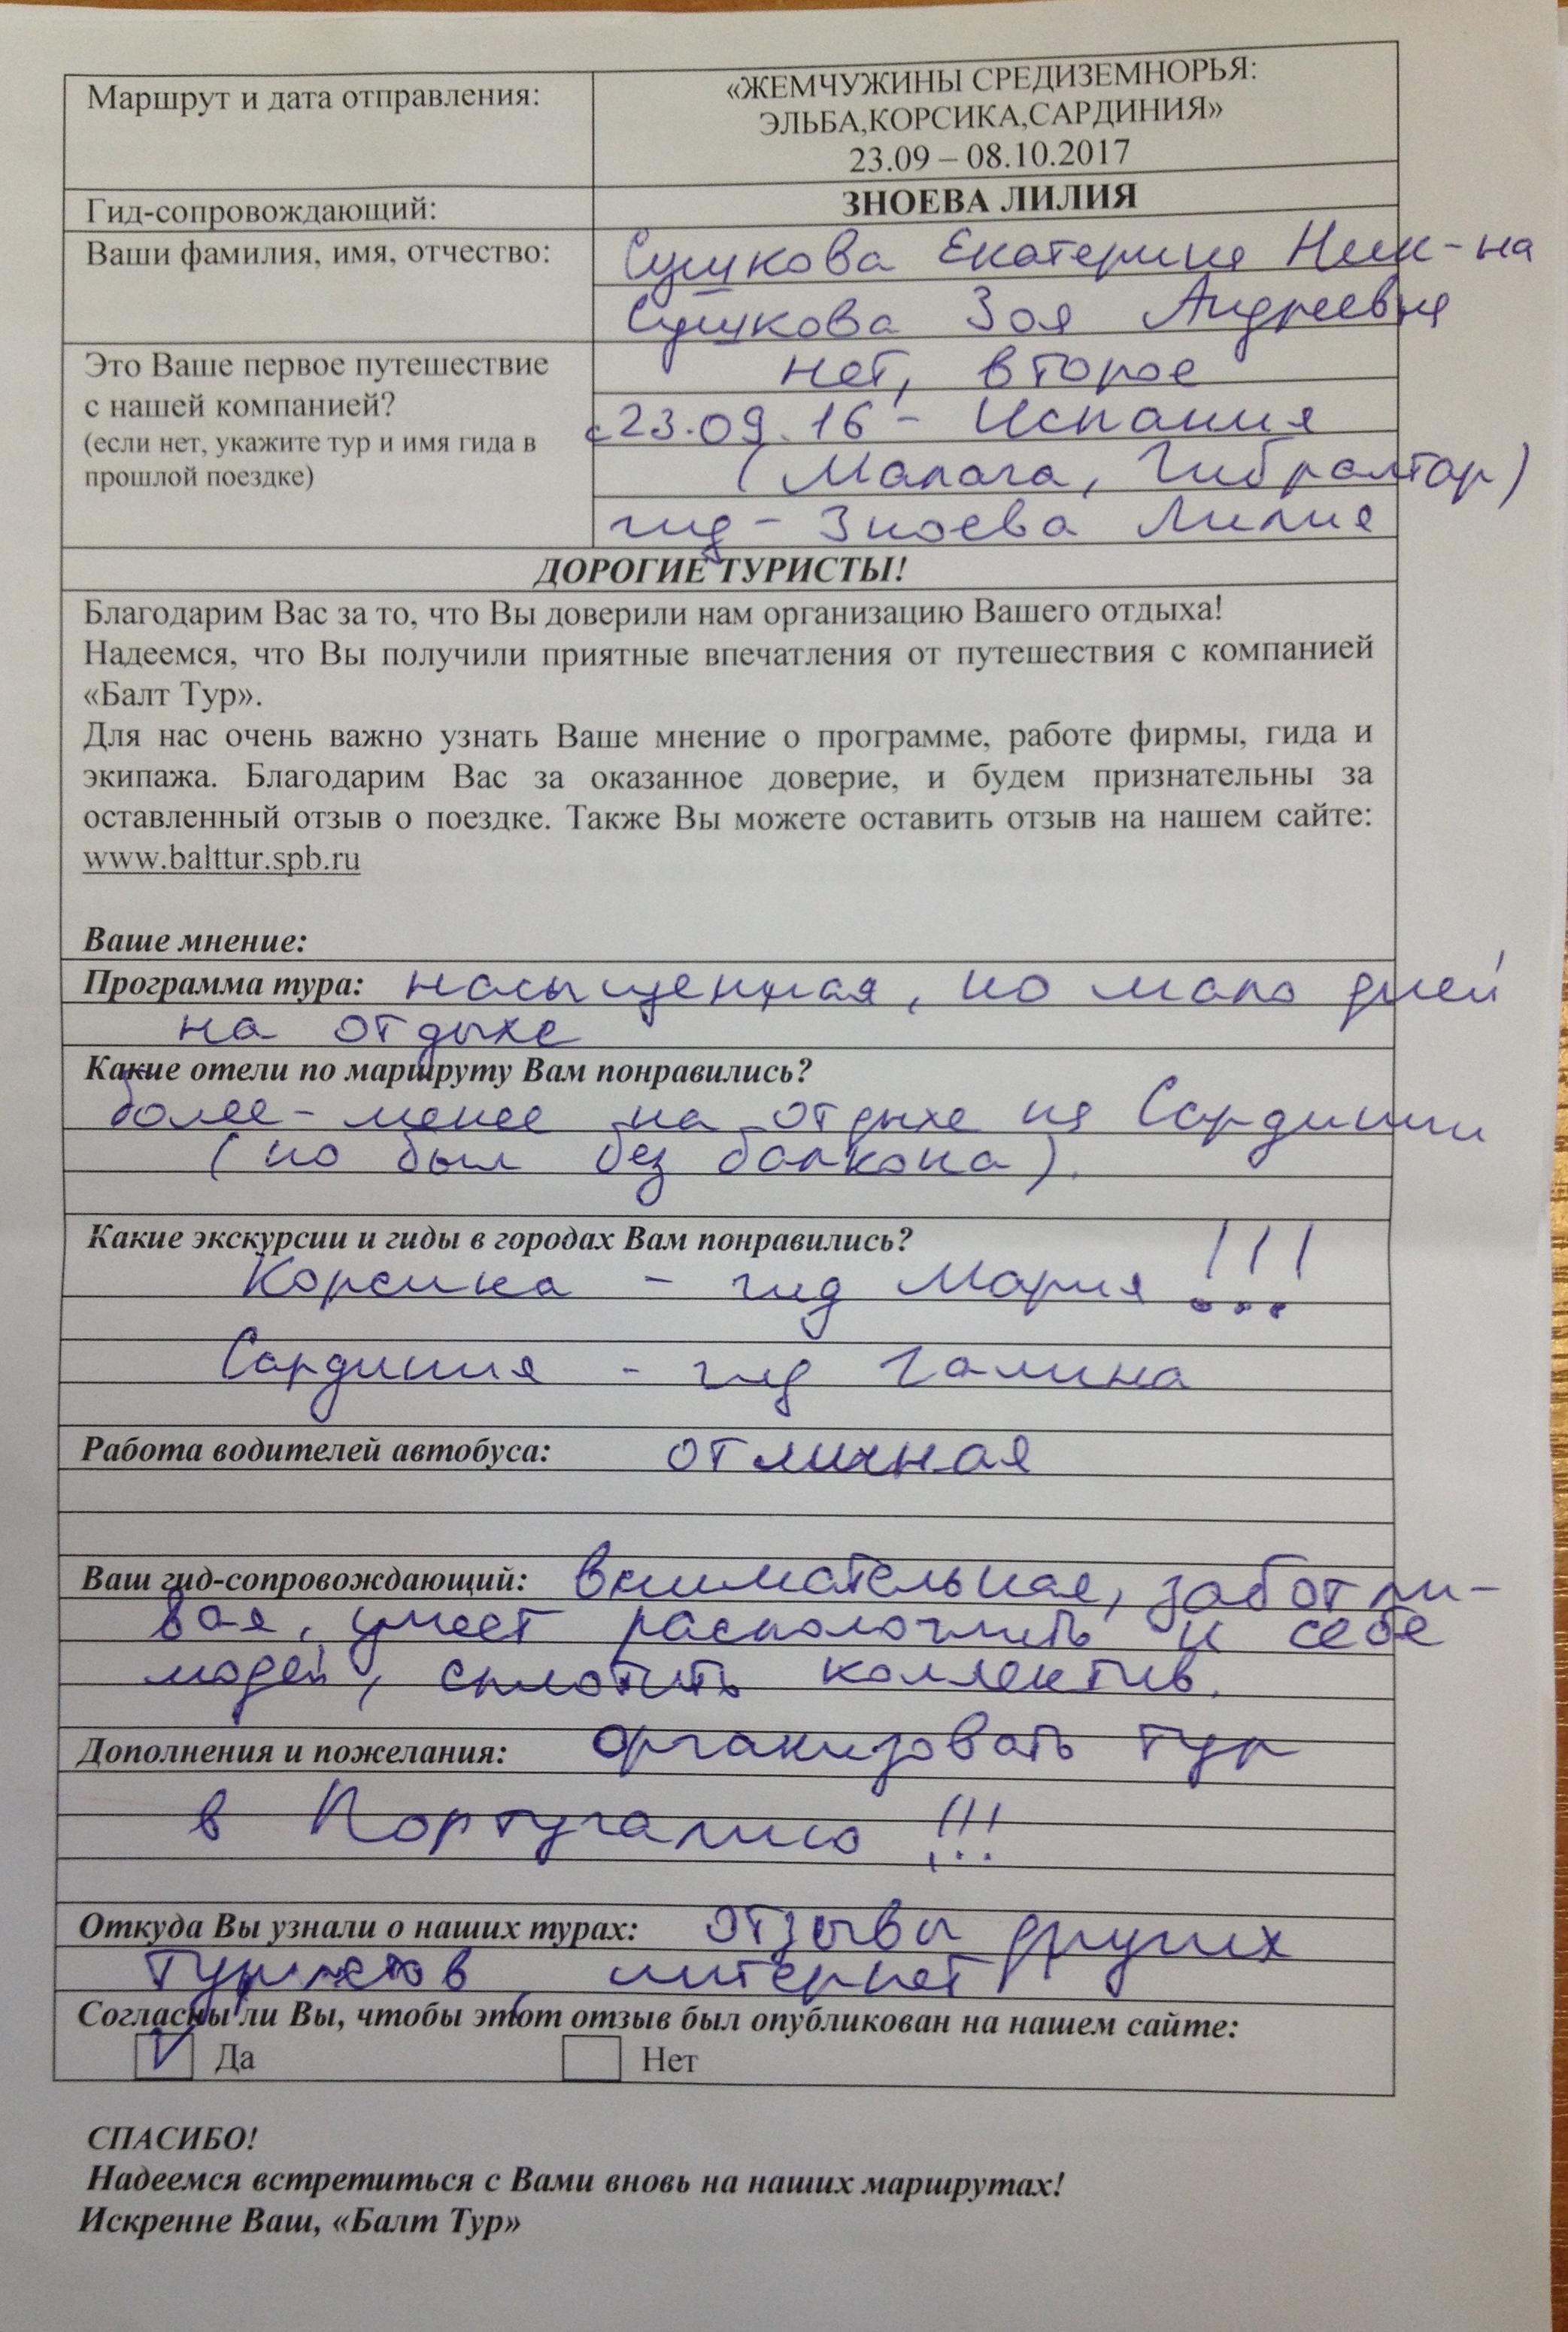 Маршрут и дата отправления:
«ЖЕМЧУЖИНЫ СРЕДИЗЕМНОРЬЯ:
ЭЛЬБА,КОРСИКА,САРДИНИЯ»
23.09 – 08.10.2017
Гид-сопровождающий:
ЗНОЕВА ЛИЛИЯ
Ваши фамилия, имя, отчество:
Сушкова Екатерина Ник-на
Сушкова Зоя Андреевна
Это Ваше первое путешествие
с нашей компанией?
(если нет, укажите тур и имя гида в
прошлой поездке)
нет, второе
с 23.09.16 - Испания
(Малага, Гибралтар)
гид - Зноева Лилия
ДОРОГИЕ ТУРИСТЫ!
Благодарим Вас за то, что Вы доверили нам организацию Вашего отдыха!
Надеемся, что Вы получили приятные впечатления от путешествия с компанией
«Балт Тур».
Для нас очень важно узнать Ваше мнение о программе, работе фирмы, гида и
экипажа. Благодарим Вас за оказанное доверие, и будем признательны за
оставленный отзыв о поездке. Также Вы можете оставить отзыв на нашем сайте:
www.balttur.spb.ru
Ваше мнение:
Программа тура: насыщенная, но мало дней
на отдыхе
Какие отели по маршруту Вам понравились?
более-менее на отдыхе на Сардинии
(но был без балкона).
Какие экскурсии и гиды в городах Вам понравились?
Корсика - гид Мария !!!
Сардиния - гид Галина
Работа водителей автобуса: отличная
Ваш гид-сопровождающий: внимательная, заботли-
вая, умеет расположить к себе
людей, сплотить коллектив.
Дополнения и пожелания: организовать тур
в Португалию !!!
Откуда Вы узнали о наших турах: отзывы других
туристов, интернет
Согласны ли Вы, чтобы этот отзыв был опубликован на нашем сайте:
V Да Нет
СПАСИБО!
Надеемся встретиться с Вами вновь на наших маршрутах!
Искренне Ваш, «Балт Тур»